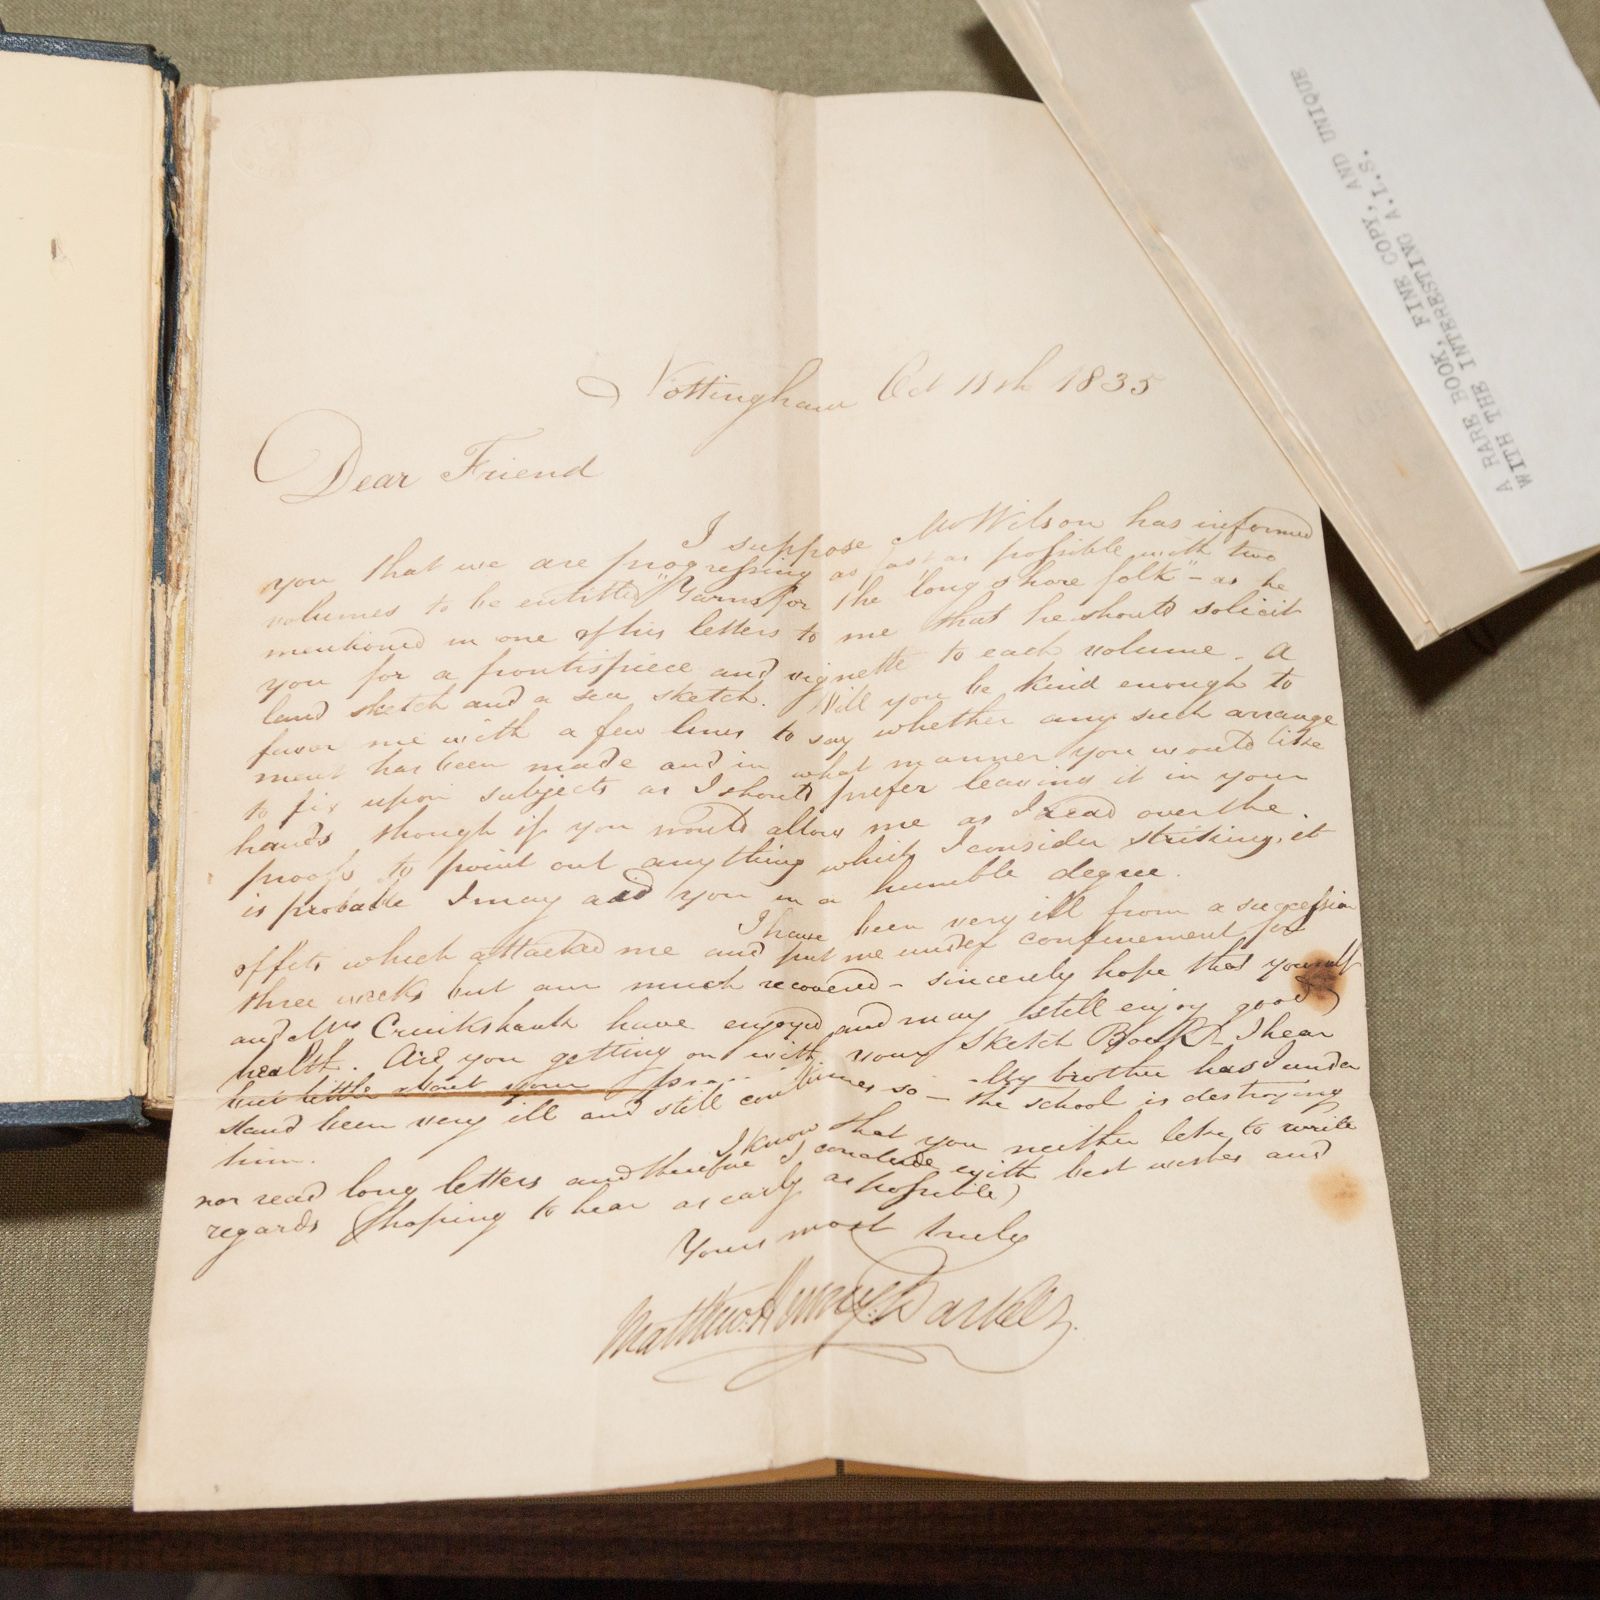 Nottingham Oct 11th 1835
Dear Friend
I suppose Mr Wilson has informed
you that we are progressing as fast as possible with two
volumes to be entitled "Yarns for the long shore folk" - as he
mentioned in one of his letters to me that he should solicit
you for a frontispiece and vignette to each volume. A
land sketch and a sea sketch. Will you be kind enough to
favor me with a few lines to say whether any such arrange
ment has been made and in what manner you would like
to fix upon subjects as I should prefer leaving it in your
hands though if you would allow me as I read over the
proofs to point out any thing which I consider striking, it
is probable I may aid you in a humble degree.
I have been very ill from a succession
of fits which attacked me and put me under confinement for
three weeks but am much recovered - sincerely hope that yourself
and Mrs Cruikshank have enjoyed and may still enjoy good
health. Are you getting on with your Sketch Book? I hear
but little about your
My brother has I under
stand been very ill and still continues so - the school is destroying
him.
I know that you neither like to write
nor read long letters and therefore I conclude with best wishes and
regards (hoping to hear as early as possible)
Yours most truly
Matthew Henry Barker
A RARE BOOK, FINE COPY, AND UNIQUE
WITH THE INTERESTING A.L.S.